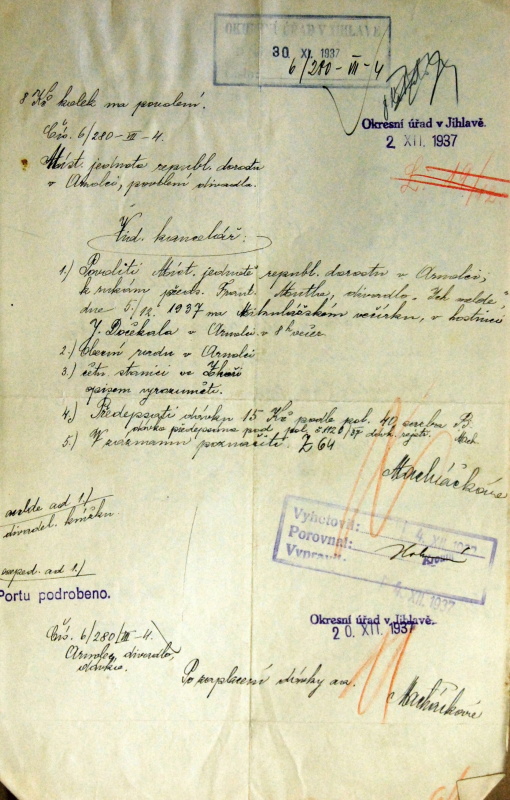 OKRESNÍ ÚŘAD V JIHLAVĚ
30 XI. 1937
6/280-III-4
8 Kč kolek na povolení.
Okresní úřad v Jihlavě.
2 XII. 1937
Čís. 6/280-III-4.
Míst. jednota republ. dorostu
v Arnolci, povolení divadla.
Vid. kancelář:
1.) Povoliti Míst. jednotě republ. dorostu v Arnolci,
k rukám předs. Frant. divadlo
dne 5./12. 1937 na Mikulášském večírku, v hostinci
J. Dočekala v Arnolci v 8 h večer.
2.) Obecní radu v Arnolci
3.) četn. stanici ve Zhoři
opisem vyrozuměti.
4.) Předepsati dávku 15 Kč podle pol. 40, sazba B.
dávka předepsána pod pol. 5120/37 dávk. rejstř.
5.) V záznamu poznačiti. Z 64
Macháčková
ad 1.)
divadel. knížku.
exped. ad 1.)
Portu podrobeno.
Vyhotovil:
Porovnal:
Vypravil:
4. XII. 1937
4. XII. 1937
Okresní úřad v Jihlavě.
20. XII. 1937
Čís. 6/280/III-4.
Arnolec, divadlo,
dávka.
Po zaplacení dávky a/a.
Macháčková